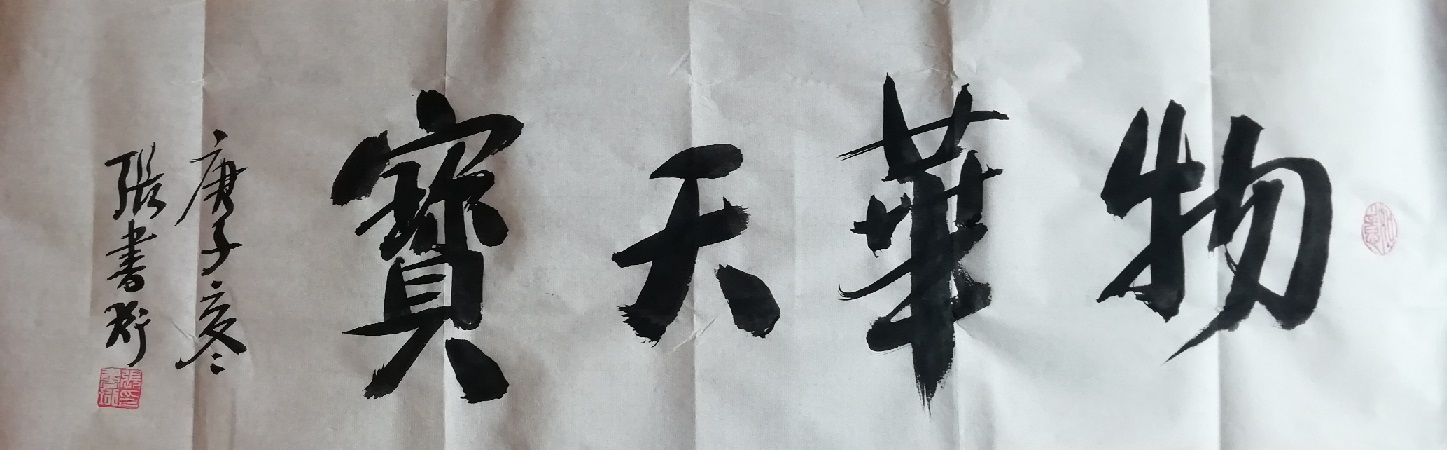 物華天寶
庚子冬
張書